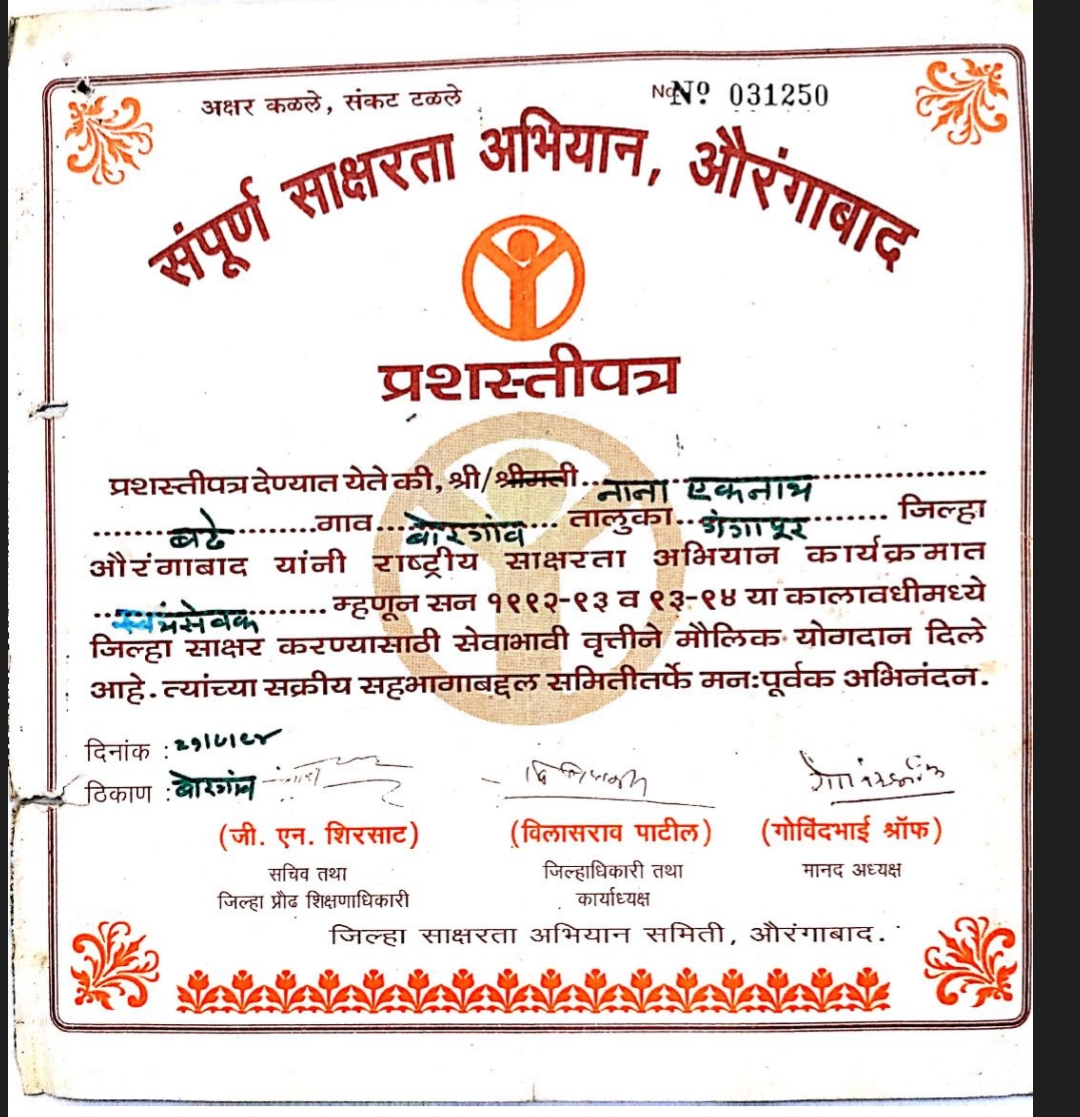 अक्षर कळले, संकट टळले
No Nº 031250
संपूर्ण साक्षरता अभियान, औरंगाबाद
प्रशस्तीपत्र
प्रशस्तीपत्र देण्यात येते की, श्री/श्रीमती नाना एकनाथ
बढे गाव बोरगांव तालुका गंगापूर जिल्हा
औरंगाबाद यांनी राष्ट्रीय साक्षरता अभियान कार्यक्रमात
स्वयंसेवक म्हणून सन १९९२-९३ व ९३-९४ या कालावधीमध्ये
जिल्हा साक्षर करण्यासाठी सेवाभावी वृत्तीने मौलिक योगदान दिले
आहे. त्यांच्या सक्रीय सहभागाबद्दल समितीतर्फे मनःपूर्वक अभिनंदन.
दिनांक :
ठिकाण : बोरगांव
(जी. एन. शिरसाट) (विलासराव पाटील) (गोविंदभाई श्रॉफ)
सचिव तथा जिल्हाधिकारी तथा मानद अध्यक्ष
जिल्हा प्रौढ शिक्षणाधिकारी कार्याध्यक्ष
जिल्हा साक्षरता अभियान समिती, औरंगाबाद.